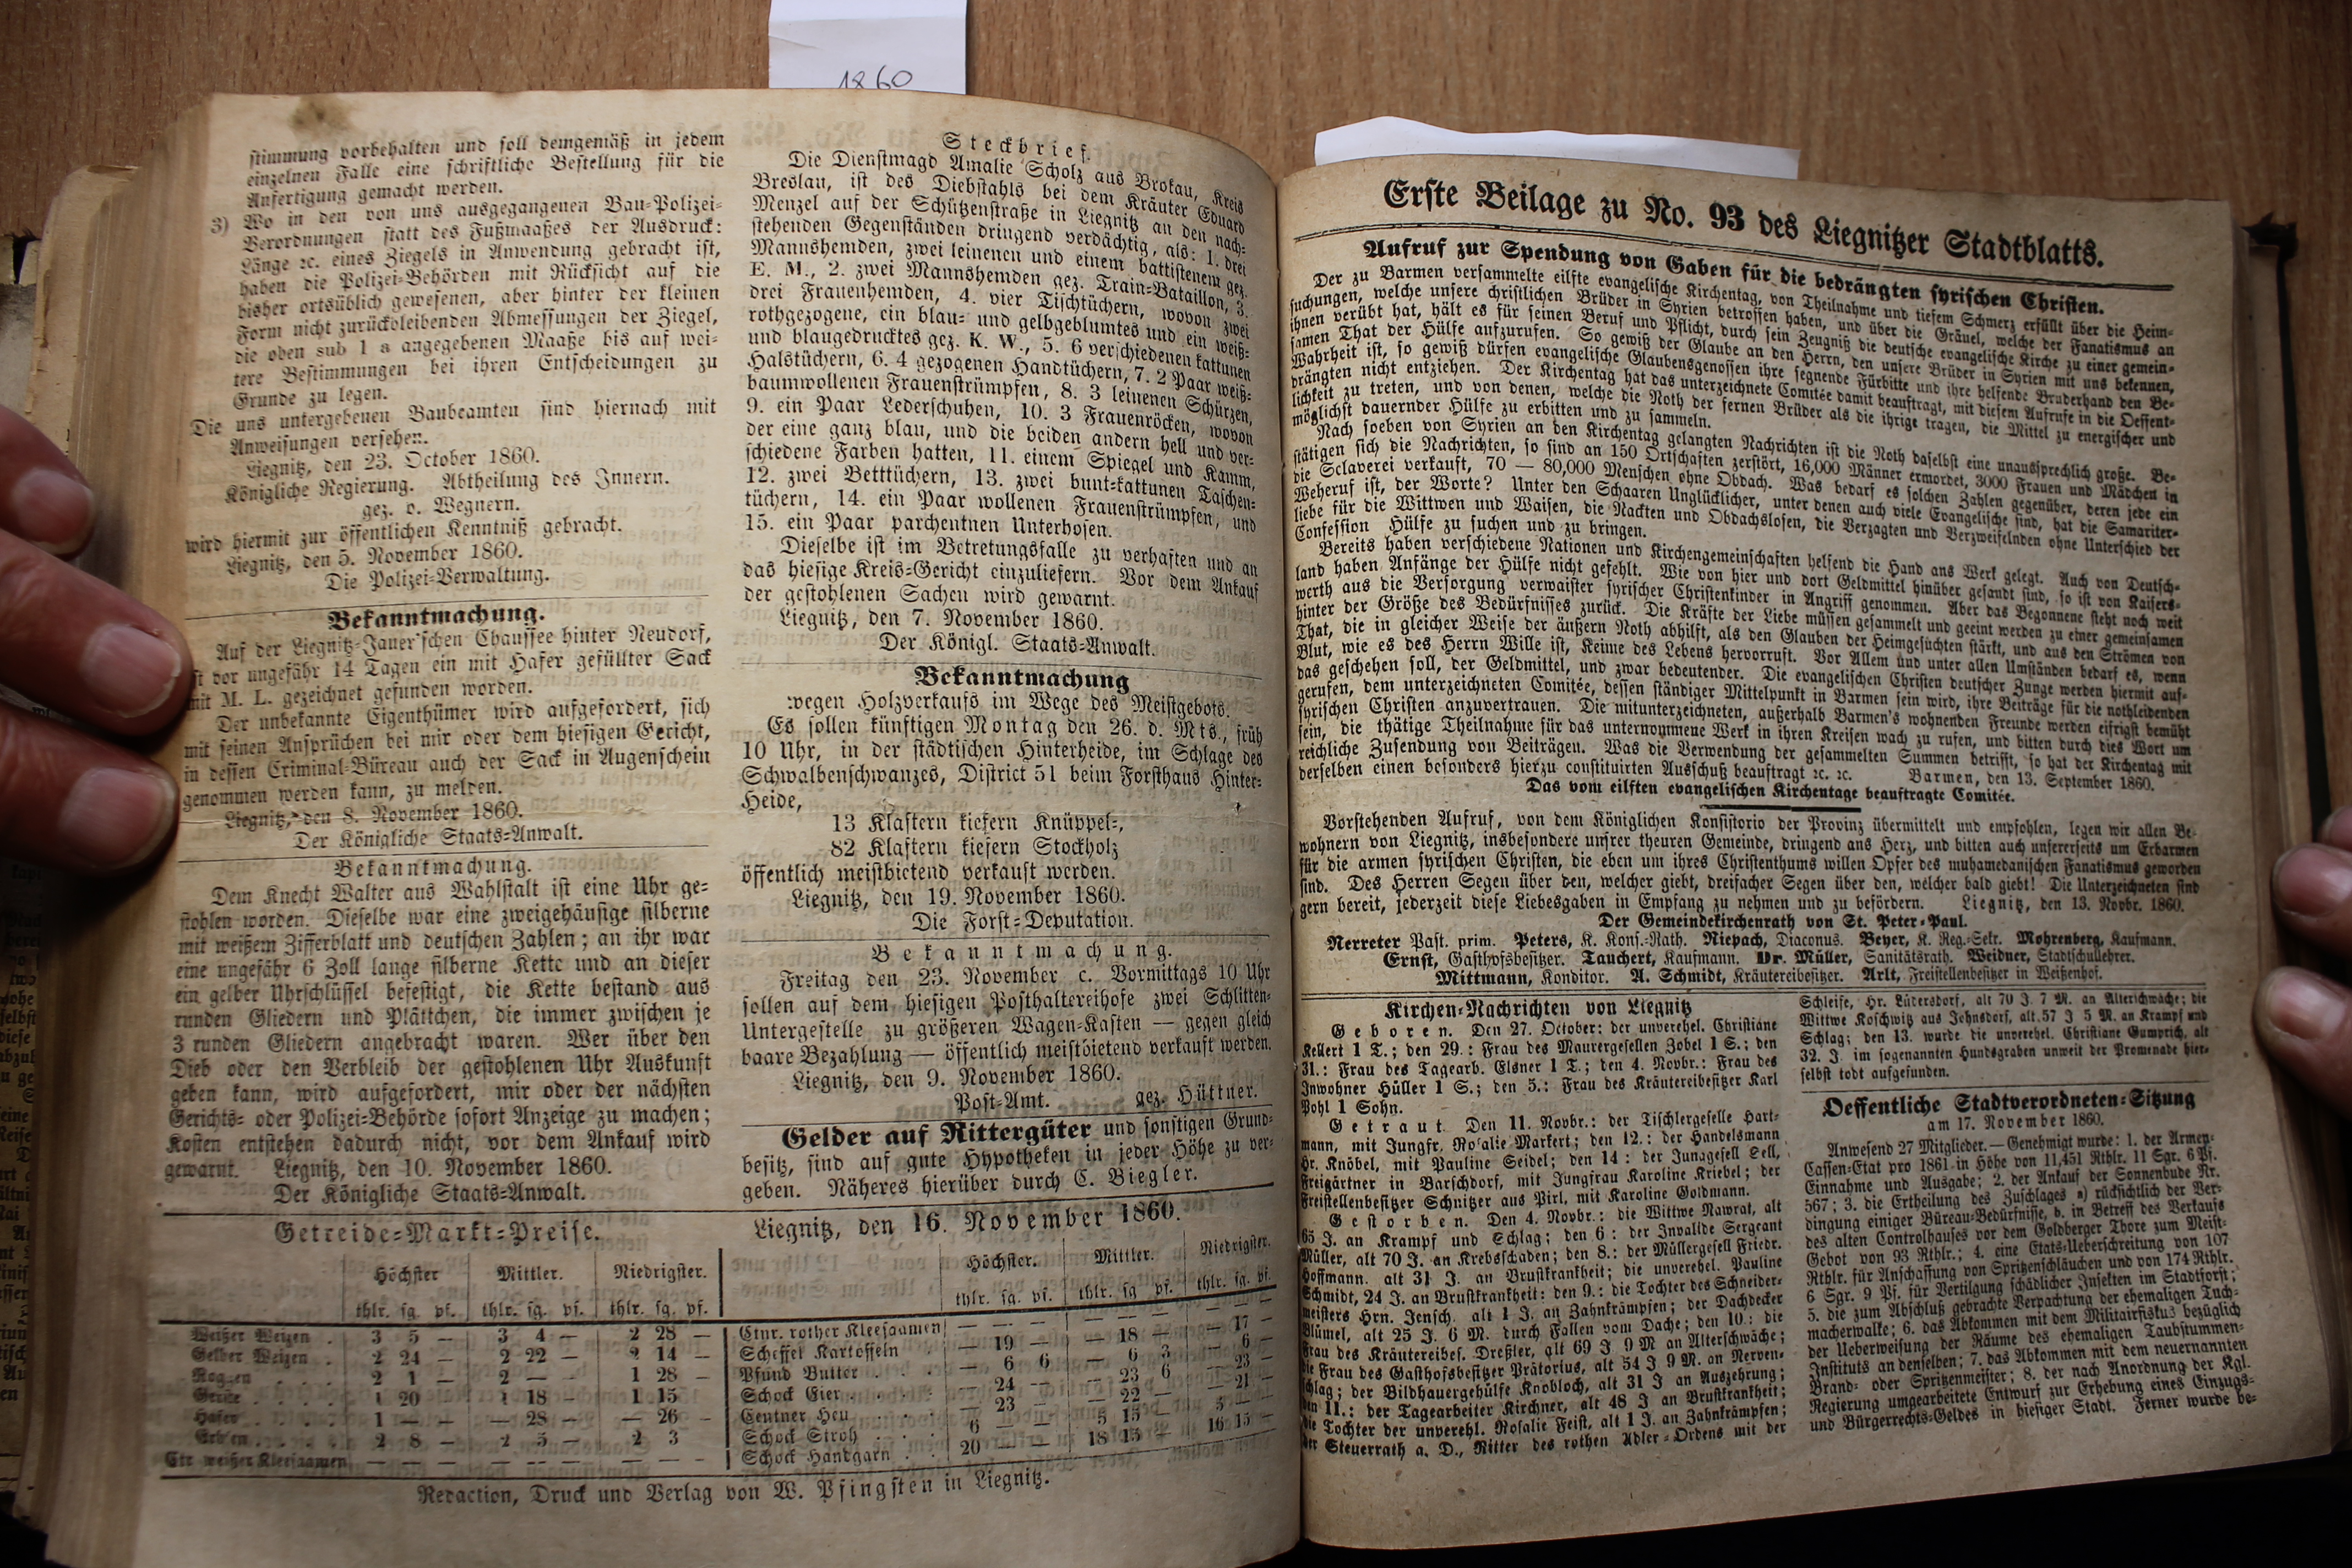 1860
stimmung vorbehalten und soll demgemäß in jedem
einzelnen Falle eine schriftliche Bestellung für die
Anfertigung gemacht werden.
3) Wo in den von uns ausgegangenen Bau-Polizei-
Verordnungen statt des Fußmaaßes der Ausdruck:
Länge ꝛc. eines Ziegels in Anwendung gebracht ist,
haben die Polizei-Behörden mit Rücksicht auf die
bisher ortsüblich gewesenen, aber hinter der kleinen
Form nicht zurückbleibenden Abmessungen der Ziegel,
die oben sub 1 a angegebenen Maaße bis auf wei-
tere Bestimmungen bei ihren Entscheidungen zu
Grunde zu legen.
Die uns untergebenen Baubeamten sind hiernach mit
Anweisungen versehen.
Liegnitz, den 23. October 1860.
Königliche Regierung. Abtheilung des Innern.
gez. v. Wegnern.
wird hiermit zur öffentlichen Kenntniß gebracht.
Liegnitz, den 5. November 1860.
Die Polizei-Verwaltung.
Bekanntmachung.
Auf der Liegnitz-Jauer'schen Chaussee hinter Neudorf,
ist vor ungefähr 14 Tagen ein mit Hafer gefüllter Sack
mit M. L. gezeichnet gefunden worden.
Der unbekannte Eigenthümer wird aufgefordert, sich
mit seinen Ansprüchen bei mir oder dem hiesigen Gericht,
in dessen Criminal-Büreau auch der Sack in Augenschein
genommen werden kann, zu melden.
Liegnitz, den 8. November 1860.
Der Königliche Staats-Anwalt.
Bekanntmachung.
Dem Knecht Walter aus Wahlstalt ist eine Uhr ge-
stohlen worden. Dieselbe war eine zweigehäusige silberne
mit weißem Zifferblatt und deutschen Zahlen; an ihr war
eine ungefähr 6 Zoll lange silberne Kette und an dieser
ein gelber Uhrschlüssel befestigt, die Kette bestand aus
runden Gliedern und Plättchen, die immer zwischen je
3 runden Gliedern angebracht waren. Wer über den
Dieb oder den Verbleib der gestohlenen Uhr Auskunft
geben kann, wird aufgefordert, mir oder der nächsten
Gerichts- oder Polizei-Behörde sofort Anzeige zu machen;
Kosten entstehen dadurch nicht, vor dem Ankauf wird
gewarnt. Liegnitz, den 10. November 1860.
Der Königliche Staats-Anwalt.
Steckbrief.
Die Dienstmagd Amalie Scholz aus Brokau, Kreis
Breslau, ist des Diebstahls bei dem Kräuter Eduard
Menzel auf der Schützenstraße in Liegnitz an den nach-
stehenden Gegenständen dringend verdächtig, als: 1. drei
Mannshemden, zwei leinenen und einem battistenem gez.
E. M., 2. zwei Mannshemden gez. Train-Bataillon, 3.
drei Frauenhemden, 4. vier Tischtüchern, wovon zwei
rothgezogene, ein blau- und gelbgeblumtes und ein weiß-
und blaugedrucktes gez. K. W., 5. 6 verschiedenen kattunen
Halstüchern, 6. 4 gezogenen Handtüchern, 7. 2 Paar weiß-
baumwollenen Frauenstrümpfen, 8. 3 leinenen Schürzen,
9. ein Paar Lederschuhen, 10. 3 Frauenröcken, wovon
der eine ganz blau, und die beiden andern hell und ver-
schiedene Farben hatten, 11. einem Spiegel und Kamm,
12. zwei Betttüchern, 13. zwei bunt-kattunen Taschen-
tüchern, 14. ein Paar wollenen Frauenstrümpfen, und
15. ein Paar parchentnen Unterhosen.
Dieselbe ist im Betretungsfalle zu verhaften und an
das hiesige Kreis-Gericht einzuliefern. Vor dem Ankauf
der gestohlenen Sachen wird gewarnt.
Liegnitz, den 7. November 1860.
Der Königl. Staats-Anwalt.
Bekanntmachung
wegen Holzverkaufs im Wege des Meistgebots.
Es sollen künftigen Montag den 26. d. Mts., früh
10 Uhr, in der städtischen Hinterheide, im Schlage des
Schwalbenschwanzes, District 51 beim Forsthaus Hinter-
Heide,
13 Klaftern kiefern Knüppel-,
82 Klaftern kiefern Stockholz
öffentlich meistbietend verkauft werden.
Liegnitz, den 19. November 1860.
Die Forst-Deputation.
Bekanntmachung.
Freitag den 23. November c. Vormittags 10 Uhr
sollen auf dem hiesigen Posthaltereihofe zwei Schlitten-
Untergestelle zu größeren Wagen-Kasten — gegen gleich
baare Bezahlung — öffentlich meistbietend verkauft werden.
Liegnitz, den 9. November 1860.
Post-Amt. gez. Hüttner.
Gelder auf Rittergüter und sonstigen Grund-
besitz, sind auf gute Hypotheken in jeder Höhe zu ver-
geben. Näheres hierüber durch C. Biegler.
Getreide-Markt-Preise. Liegnitz, den 16. November 1860.
Höchster Mittler. Niedrigster. Höchster. Mittler. Niedrigster.
thlr. sg. pf. thlr. sg. pf. thlr. sg. pf. thlr. sg. pf. thlr. sg pf. thlr. sg. pf.
Weißer Weizen . 3 5 — 3 4 — 2 28 — Ctnr. rother Kleesaamen — — — — — — — — —
Gelber Weizen . 2 24 — 2 22 — 2 14 — Scheffel Kartoffeln . — 19 — — 18 — — 17 —
Roggen . . . 2 1 — 2 — — 1 28 — Pfund Butter . . . — 6 6 — 6 3 — 6 —
Gerste . . . . 1 20 — 1 18 — 1 15 Schock Eier . . . . — 24 — — 23 6 — 23 —
Hafer . . . . 1 — — — 28 — — 26 — Centner Heu . . . — 23 — — 22 — — 21 —
Erbsen . . . . 2 8 — 2 5 — 2 3 Schock Stroh . . . 6 — — 5 15 — 5 —
Ctr weißer Kleesaamen — — — — — — — — — Schock Handgarn . . 20 — — 18 15 — 16 15 —
Redaction, Druck und Verlag von W. Pfingsten in Liegnitz.
Erste Beilage zu No. 93 des Liegnitzer Stadtblatts.
Aufruf zur Spendung von Gaben für die bedrängten syrischen Christen.
Der zu Barmen versammelte eilfte evangelische Kirchentag, von Theilnahme und tiefem Schmerz erfüllt über die Heim-
suchungen, welche unsere christlichen Brüder in Syrien betroffen haben, und über die Gräuel, welche der Fanatismus an
ihnen verübt hat, hält es für seinen Beruf und Pflicht, durch sein Zeugniß die deutsche evangelische Kirche zu einer gemein-
samen That der Hülfe aufzurufen. So gewiß der Glaube an den Herrn, den unsere Brüder in Syrien mit uns bekennen,
Wahrheit ist, so gewiß dürfen evangelische Glaubensgenossen ihre segnende Fürbitte und ihre helfende Bruderhand den Be-
drängten nicht entziehen. Der Kirchentag hat das unterzeichnete Comitée damit beauftragt, mit diesem Aufrufe in die Oeffent-
lichkeit zu treten, und von denen, welche die Noth der fernen Brüder als die ihrige tragen, die Mittel zu energischer und
möglichst dauernder Hülfe zu erbitten und zu sammeln.
Nach soeben von Syrien an den Kirchentag gelangten Nachrichten ist die Noth daselbst eine unaussprechlich große. Be-
stätigen sich die Nachrichten, so sind an 150 Ortschaften zerstört, 16,000 Männer ermordet, 3000 Frauen und Mädchen in
die Sclaverei verkauft, 70 — 80,000 Menschen ohne Obdach. Was bedarf es solchen Zahlen gegenüber, deren jede ein
Weheruf ist, der Worte? Unter den Schaaren Unglücklicher, unter denen auch viele Evangelische sind, hat die Samariter-
liebe für die Wittwen und Waisen, die Nackten und Obdachslosen, die Verzagten und Verzweifelnden ohne Unterschied der
Confession Hülfe zu suchen und zu bringen.
Bereits haben verschiedene Nationen und Kirchengemeinschaften helfend die Hand ans Werk gelegt. Auch von Deutsch-
land haben Anfänge der Hülfe nicht gefehlt. Wie von hier und dort Geldmittel hinüber gesandt sind, so ist von Kaisers-
werth aus die Versorgung verwaister syrischer Christenkinder in Angriff genommen. Aber das Begonnene steht noch weit
hinter der Größe des Bedürfnisses zurück. Die Kräfte der Liebe müssen gesammelt und geeint werden zu einer gemeinsamen
That, die in gleicher Weise der äußern Noth abhilft, als den Glauben der Heimgesuchten stärkt, und aus den Strömen von
Blut, wie es des Herrn Wille ist, Keime des Lebens hervorruft. Vor Allem und unter allen Umständen bedarf es, wenn
das geschehen soll, der Geldmittel, und zwar bedeutender. Die evangelischen Christen deutscher Zunge werden hiermit auf-
gerufen, dem unterzeichneten Comitée, dessen ständiger Mittelpunkt in Barmen sein wird, ihre Beiträge für die nothleidenden
syrischen Christen anzuvertrauen. Die mitunterzeichneten, außerhalb Barmen's wohnenden Freunde werden eifrigst bemüht
sein, die thätige Theilnahme für das unternommene Werk in ihren Kreisen wach zu rufen, und bitten durch dies Wort um
reichliche Zusendung von Beiträgen. Was die Verwendung der gesammelten Summen betrifft, so hat der Kirchentag mit
derselben einen besonders hierzu constituirten Ausschuß beauftragt ꝛc. ꝛc. Barmen, den 13. September 1860.
Das vom eilften evangelischen Kirchentage beauftragte Comitée.
Vorstehenden Aufruf, von dem Königlichen Konsistorio der Provinz übermittelt und empfohlen, legen wir allen Be-
wohnern von Liegnitz, insbesondere unsrer theuren Gemeinde, dringend ans Herz, und bitten auch unsererseits um Erbarmen
für die armen syrischen Christen, die eben um ihres Christenthums willen Opfer des muhamedanischen Fanatismus geworden
sind. Des Herren Segen über den, welcher giebt, dreifacher Segen über den, welcher bald giebt! Die Unterzeichneten sind
gern bereit, jederzeit diese Liebesgaben in Empfang zu nehmen und zu befördern. Liegnitz, den 13. Novbr. 1860.
Der Gemeindekirchenrath von St. Peter-Paul.
Nerreter Past. prim. Peters, K. Kons.-Rath. Niepach, Diaconus. Beyer, K. Reg.-Sekr. Mohrenberg, Kaufmann.
Ernst, Gasthofsbesitzer. Tauchert, Kaufmann. Dr. Müller, Sanitätsrath. Weidner, Stadtschullehrer.
Mittmann, Konditor. A. Schmidt, Kräutereibesitzer. Arlt, Freistellenbesitzer in Weißenhof.
Kirchen-Nachrichten von Liegnitz
Geboren. Den 27. October: der unverehel. Christiane
Kellert 1 T.; den 29.: Frau des Maurergesellen Zobel 1 S.; den
31.: Frau des Tagearb. Elsner 1 T.; den 4. Novbr.: Frau des
Inwohner Hüller 1 S.; den 5.: Frau des Kräutereibesitzer Karl
Pohl 1 Sohn.
Getraut. Den 11. Novbr.: der Tischlergeselle Hart-
mann, mit Jungfr. Rosalie Markert; den 12.: der Handelsmann
Hr. Knöbel, mit Pauline Seidel; den 14: der Junggesell Sell,
Freigärtner in Barschdorf, mit Jungfrau Karoline Kriebel; der
Freistellenbesitzer Schnitzer aus Pirl, mit Karoline Goldmann.
Gestorben. Den 4. Novbr.: die Wittwe Nawrat, alt
65 J. an Krampf und Schlag; den 6: der Invalide Sergeant
Müller, alt 70 J. an Krebsschaden; den 8.: der Müllergesell Friedr.
Hoffmann. alt 31 J. an Brustkrankheit; die unverehel. Pauline
Schmidt, 24 J. an Brustkrankheit: den 9.: die Tochter des Schneider-
meisters Hrn. Jensch. alt 1 J. an Zahnkrämpfen; der Dachdecker
Blümel, alt 25 J. 6 M. durch Fallen vom Dache; den 10.: die
Frau des Kräutereibes. Dreßler, alt 69 J 9 M an Alterschwäche;
die Frau des Gasthofsbesitzer Prätorius, alt 54 J 9 M. an Nerven-
schlag; der Bildhauergehülfe Knobloch, alt 31 J an Auszehrung;
den 11.: der Tagearbeiter Kirchner, alt 48 J an Brustkrankheit;
die Tochter der unverehl. Rosalie Feist, alt 1 J. an Zahnkrämpfen;
der Steuerrath a. D., Ritter des rothen Adler-Ordens mit der
Schleife, Hr. Lüdersdorf, alt 70 J. 7 M. an Alterschwäche; die
Wittwe Koschwitz aus Johnsdorf, alt 57 J 5 M. an Krampf und
Schlag; den 13. wurde die unverehel. Christiane Gumprich, alt
32. J. im sogenannten Hundsgraben unweit der Promenade hier-
selbst todt aufgefunden.
Oeffentliche Stadtverordneten-Sitzung
am 17. November 1860.
Anwesend 27 Mitglieder. — Genehmigt wurde: 1. der Armen-
Cassen-Etat pro 1861 in Höhe von 11,451 Rthlr. 11 Sgr. 6 Pf.
Einnahme und Ausgabe; 2. der Ankauf der Sonnenbude Nr.
567; 3. die Ertheilung des Zuschlages a) rücksichtlich der Ver-
dingung einiger Büreau-Bedürfnisse, b. in Betreff des Verkaufs
des alten Controlhauses vor dem Goldberger Thore zum Meist-
Gebot von 93 Rthlr.; 4. eine Etats-Ueberschreitung von 107
Rthlr. für Anschaffung von Spritzenschläuchen und von 174 Rthlr.
6 Sgr. 9 Pf. für Vertilgung schädlicher Insekten im Stadtforst;
5. die zum Abschluß gebrachte Verpachtung der ehemaligen Tuch-
macherwalke; 6. das Abkommen mit dem Militairfiskus bezüglich
der Ueberweisung der Räume des ehemaligen Taubstummen-
Instituts an denselben; 7. das Abkommen mit dem neuernannten
Brand- oder Spritzenmeister; 8. der nach Anordnung der Kgl.
Regierung umgearbeitete Entwurf zur Erhebung eines Einzugs-
und Bürgerrechts-Geldes in hiesiger Stadt. Ferner wurde be-